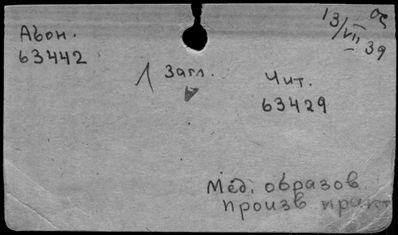 13/VII 39
Абон.
63442
1 Загл.
Чит.
63429
Мед. образов.
произв практ